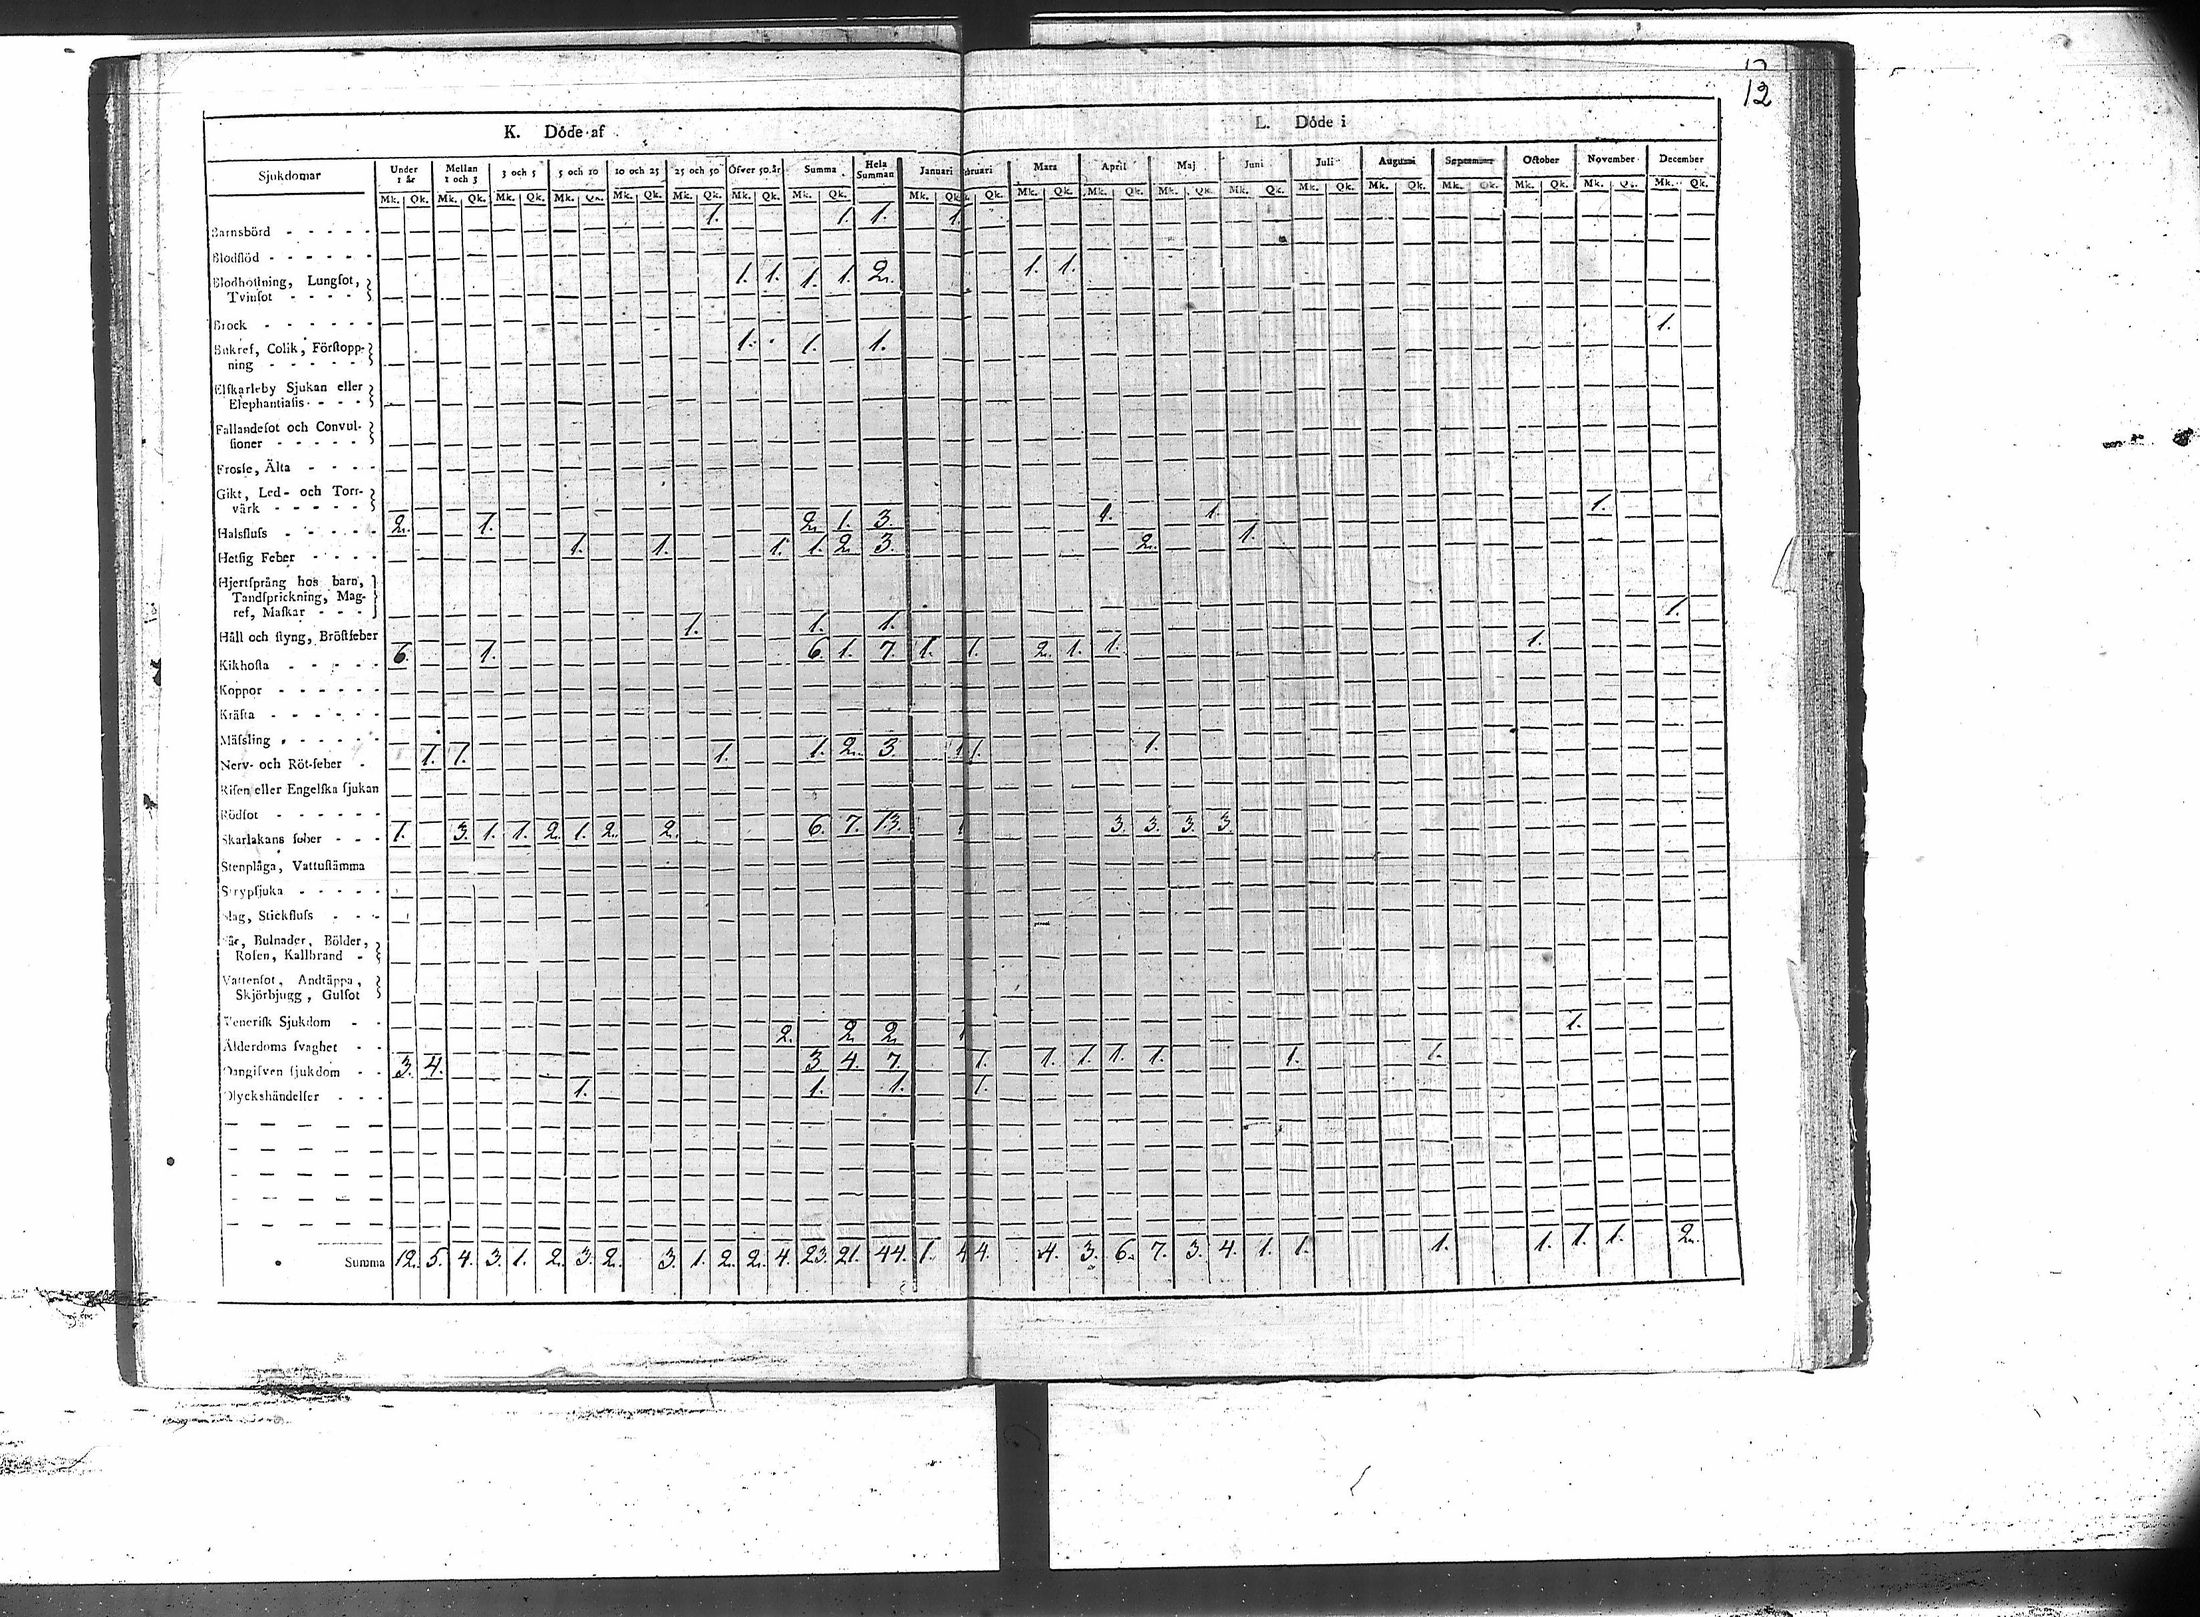 12
K. Döde af
L. Döde i
Sjukdomar Under 1 år Mellan 1 och 3 3 och 5 5 och 10 10 och 25 25 och 50 Öfver 50 år Summa Hela Summan Januari Mars April Maj Juni Juli Augusti September October November December
Mk. Qk. Mk. Qk. Mk. Qk. Mk. Qk. Mk. Qk. Mk. Qk. Mk. Qk. Mk. Qk. Mk. Qk. Mk. Qk. Mk. Qk. Mk. Qk. Mk. Qk. Mk. Qk. Mk. Qk. Mk. Qk. Mk. Qk. Mk. Qk. Mk. Qk.
Barnsbörd - - - - - 1. 1. 1. 1.
Blodflöd - - - - - -
Blodhostning, Lungsot, 1. 1. 1. 1. 2. 1. 1.
Tvinsot - - - -
Brock - - - - - -
Bukref, Colik, Förstopp- 1. 1. 1. 1.
ning - - - - -
Elfkarleby Sjukan eller
Elephantiasis - - -
Fallandesot och Convul-
sioner - - - - -
Frossa, Älta - - - -
Gikt, Led- och Torr-
värk - - - - -
Halsfluss - - - - - 2. 1. 2. 1. 3. 1. 1. 1.
Hetsig Feber - - - - 1. 1. 1. 1. 2. 3. 2. 1.
Hjertsprång hos barn,
Tandsprickning, Mag-
ref, Maskar - - -
Håll och styng, Bröstfeber 1. 1. 1. 1.
Kikhosta - - - - - 6. 1. 6. 1. 7. 1. 1. 2. 1. 1. 1.
Koppor - - - - - -
Kräfta - - - - - -
Mässling - - - - - -
Nerv- och Röt-feber - 1. 1. 1. 1. 2. 3. 1. 1. 1.
Risen eller Engelska sjukan
Rödsot - - - - - -
Skarlakans feber - - - 1. 3. 1. 1. 2. 1. 2. 2. 6. 7. 13. 1 3. 3. 3. 3.
Stenplåga, Vattustämma
Strypsjuka - - - - -
Slag, Stickfluss - - -
Sår, Bulnader, Bölder,
Rosen, Kallbrand -
Vattensot, Andtäppa,
Skjörbjugg, Gulsot
Venerisk Sjukdom - -
Ålderdoms svaghet - - 2. 2. 2. 1 1.
Oangifven sjukdom - - 3. 4. 3 4. 7. 1. 1. 1. 1. 1. 1. 1.
Olyckshändelser - - - 1. 1. 1. 1.
Summa 12. 5. 4. 3. 1. 2. 3. 2. 3. 1. 2. 2. 4. 23. 21. 44. 1. 4 4. 4. 3. 6. 7. 3. 4. 1. 1. 1. 1. 1. 1. 2.